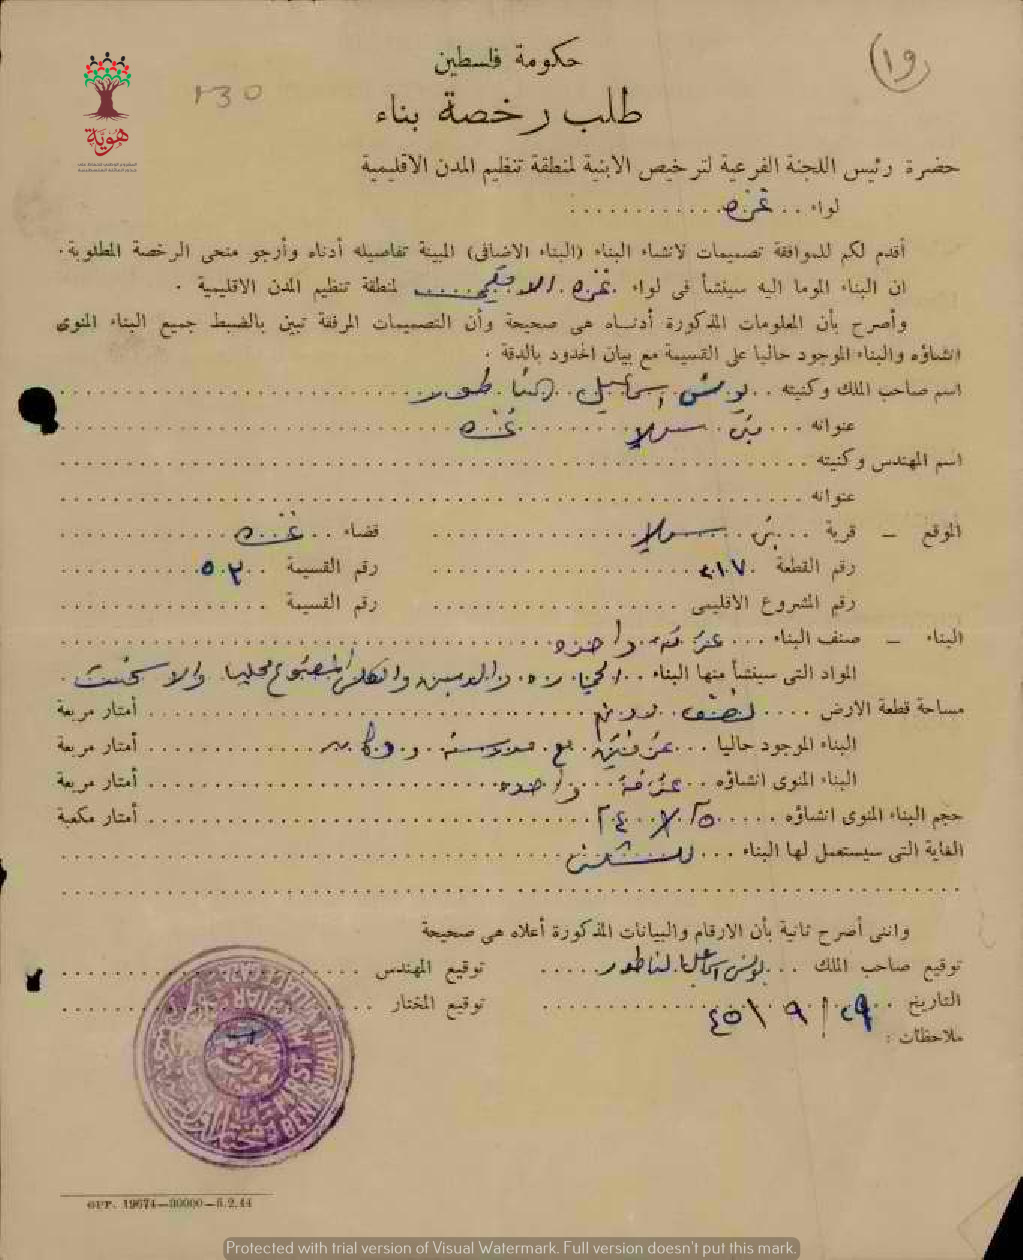 حكومة فلسطين
(١٩)
٢٣٥
طلب رخصة بناء
هوية
حضرة رئيس اللجنة الفرعية لترخيص الابنية لمنطقة تنظيم المدن الاقليمية
لواء .. غزه
أقدم لكم للموافقة تصميمات لانشاء البناء (البناء الاضافى) المبينة تفاصيله أدناه وأرجو منحى الرخصة المطلوبة .
ان البناء الموما اليه سينشأ فى لواء . غزه الاقليمي .... لمنطقة تنظيم المدن الاقليمية .
وأصرح بأن المعلومات المذكورة أدناه هى صحيحة وأن التصميمات المرفقة تبين بالضبط جميع البناء المنوى
انشاؤه والبناء الموجود حاليا على القسيمة مع بيان الحدود بالدقة .
اسم صاحب الملك وكنيته ... يونس اسماعيل الناطور
عنوانه ... بني سهيلا غزه
اسم المهندس وكنيته
عنوانه
الموقع – قرية ... بني سهيلا قضاء .. غزه
رقم القطعة . ٢١٧ رقم القسيمة .. ٥٣
رقم المشروع الاقليمى رقم القسيمة
البناء – صنف البناء ... غرفة واحده
المواد التى سينشأ منها البناء .. الحجاره والدبس والكلس المصنوع محليا والاسمنت .
مساحة قطعة الارض .... نصف دونم أمتار مربعة
البناء الموجود حاليا ... غرفتين مع أمتار مربعة
البناء المنوى انشاؤه .. غرفة واحده أمتار مربعة
حجم البناء المنوى انشاؤه أمتار مكعبة
الغاية التى سيستعمل لها البناء ... للسكن
واننى أصرح ثانية بأن الارقام والبيانات المذكورة أعلاه هى صحيحة
توقيع صاحب الملك ... يونس اسماعيل الناطور توقيع المهندس
التاريخ .. ٢٩ / ٩ / ٤٥ توقيع المختار
ملاحظات :
GPP. 19674—30000—6.2.44
Protected with trial version of Visual Watermark. Full version doesn't put this mark.